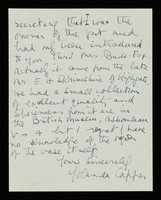 secretary that I was the
owner of the pot and
had my been introduced
to you
Actually it came from the late
Mr. E. H. of Highgate
He had a small collection
of excellent quality and
specimens from it are in
the British Museum, Ashmolean
V. & A but I regret I have
no knowledge of the
of the vase itself
Yours sincerely
Yolanda Capper